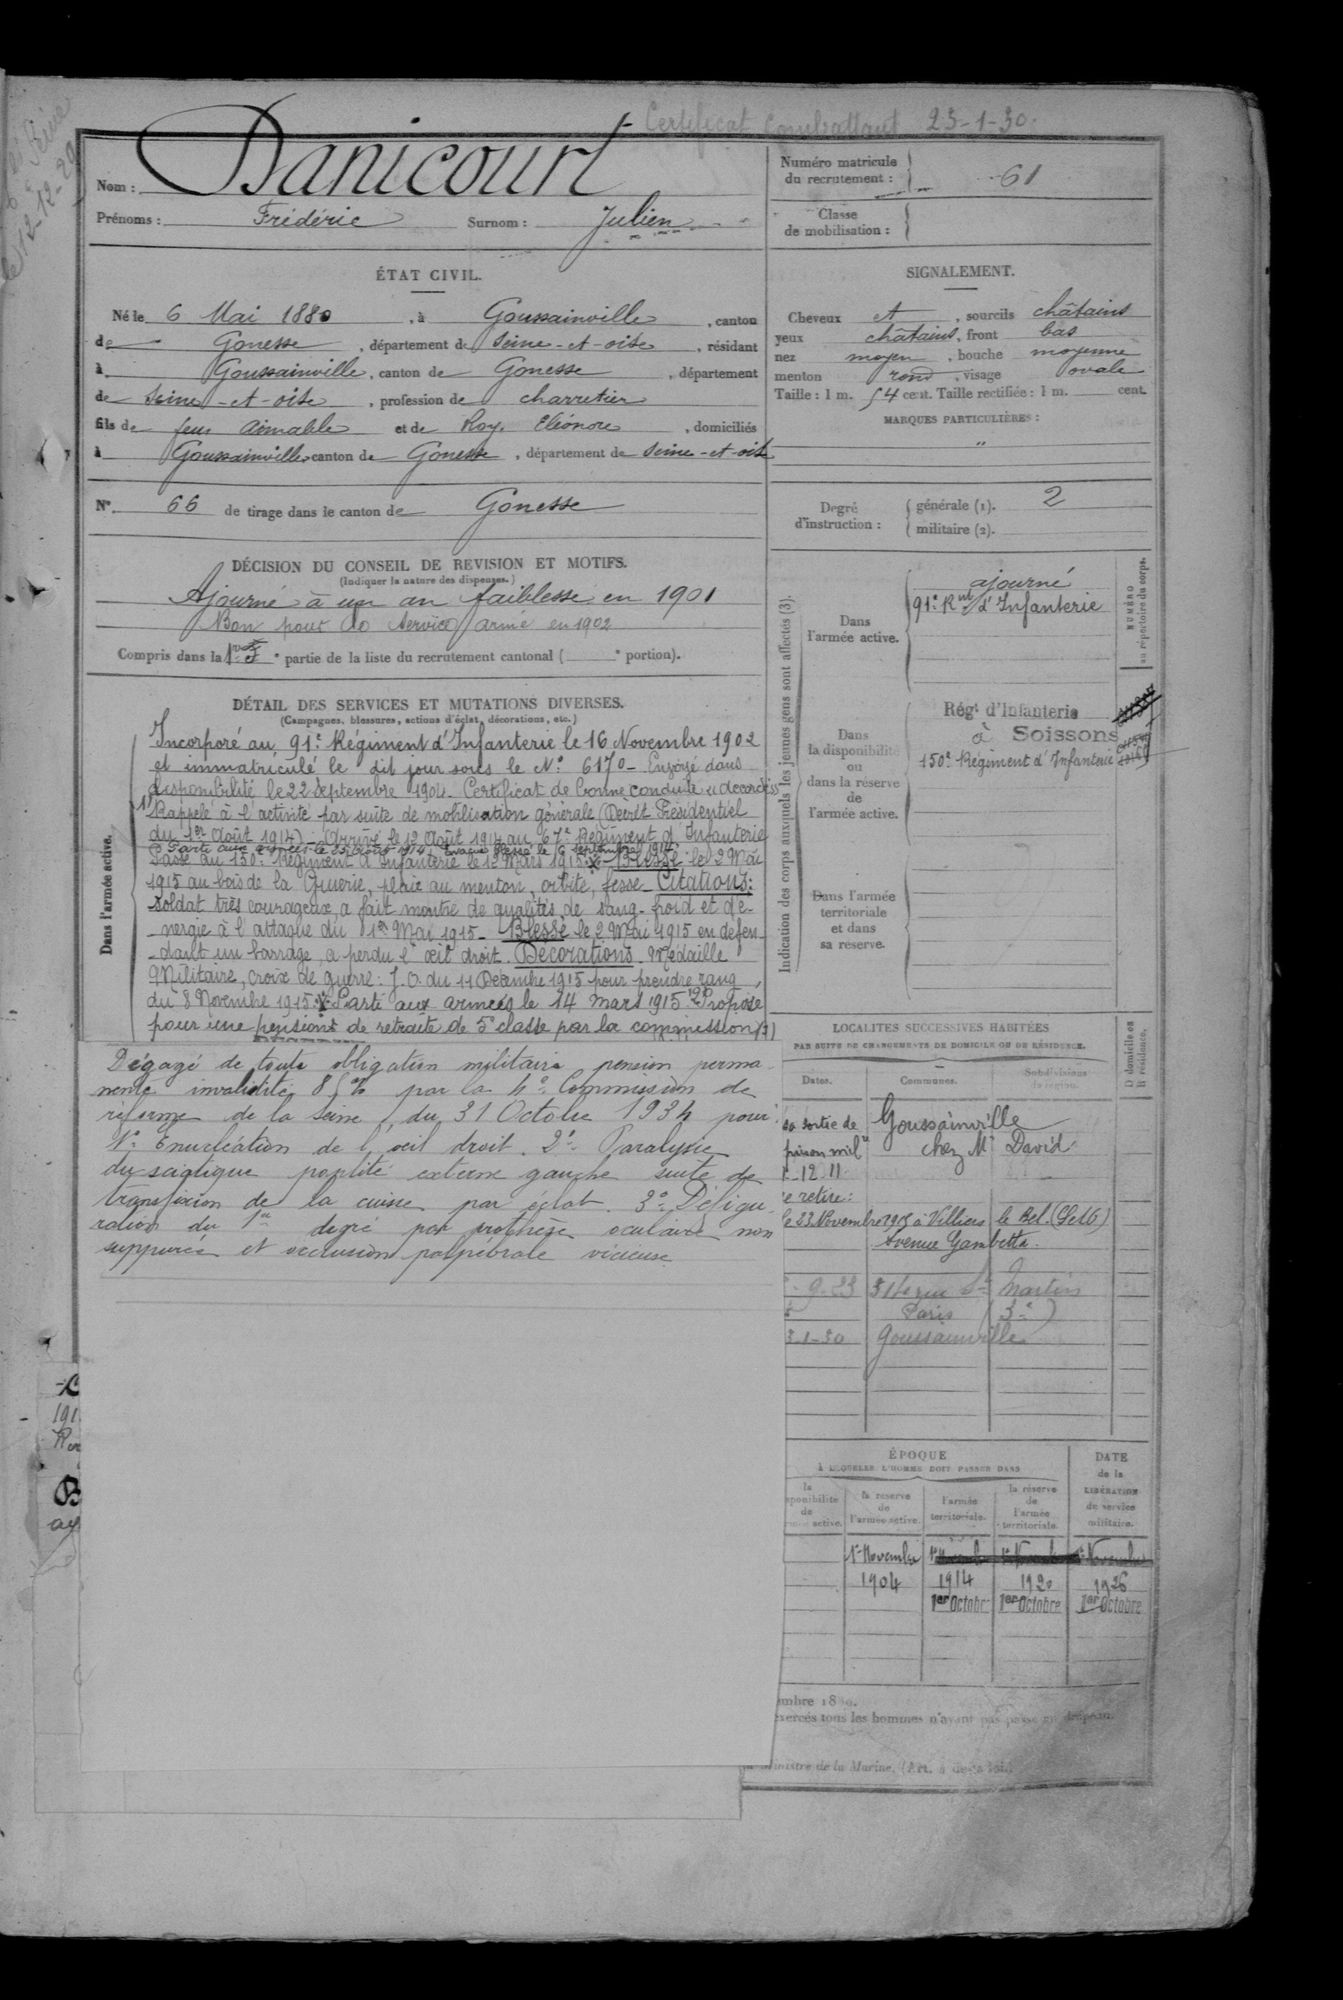 Certificat Combattant 23-1-30.
le 12-12-20
Nom : Danicourt
Prénoms : Frédéric Surnom : Julien
Numéro matricule du recrutement : 61
Classe de mobilisation :
ÉTAT CIVIL.
Né le 6 Mai 1880, à Goussainville, canton
de Gonesse, département de Seine-et-oise, résidant
à Goussainville, canton de Gonesse, département
de Seine-et-oise, profession de charretier
fils de feu Aimable et de Roy, Eléonore, domiciliés
à Goussainville canton de Gonesse, département de Seine-et-oise
N° 66 de tirage dans le canton de Gonesse
SIGNALEMENT.
Cheveux et, sourcils châtains
yeux châtains, front bas
nez moyen, bouche moyenne
menton rond, visage ovale
Taille : 1 m. 54 cent. Taille rectifiée : 1 m. cent.
MARQUES PARTICULIÈRES :
"
Degré d'instruction :
générale (1). 2
militaire (2).
DÉCISION DU CONSEIL DE REVISION ET MOTIFS.
(Indiquer la nature des dispenses.)
Ajourné à un an faiblesse en 1901
Bon pour le service armé en 1902
Compris dans la 1re partie de la liste du recrutement cantonal ( e portion).
DÉTAIL DES SERVICES ET MUTATIONS DIVERSES.
(Campagnes, blessures, actions d'éclat, décorations, etc.)
Dans l'armée active.
Incorporé au 91e Régiment d'Infanterie le 16 Novembre 1902
et immatriculé le dit jour sous le N° 6170 - Envoyé dans
disponibilité le 22 Septembre 1904. Certificat de bonne conduite "accordé"
Rappelé à l'activité par suite de mobilisation générale (Décrêt Présidentiel
du 1er Août 1914). Arrivé le 12 Août 1914 au 67e Régiment d'Infanterie
Parti aux armées le 1914. Evacué blessé le 6 septembre 1914.
Passé au 150e Régiment d'Infanterie le 12 Mars 1915. Blessé le 2 Mai
1915 au bois de la Gruerie, plaie au menton, orbite, fesse - Citations :
Soldat très courageux, a fait montre de qualités de sang-froid et d'é-
nergie à l'attaque du 1er Mai 1915 - Blessé le 2 Mai 1915 en défen-
-dant un barrage, a perdu l'œil droit. Décorations. Médaille
Militaire, croix de guerre : J.O. du 11 Décembre 1915 pour prendre rang
du 8 Novembre 1915. Parti aux armées le 14 mars 1915. Proposé
pour une pension de retraite de 5e classe par la commission
Dégagé de toute obligation militaire pension perma-
nente invalidité 85% par la 4e Commission de
réforme de la Seine du 31 Octobre 1934 pour :
1° Enucléation de l'œil droit. 2° Paralysie
du sciatique poplité externe gauche suite de
transfixion de la cuisse par éclat. 3° Défigu-
ration du 1er degré par prothèse oculaire non
suppurée et occlusion palpébrale vicieuse
Indication des corps auxquels les jeunes gens sont affectés (3).
NUMÉRO au répertoire du corps.
Dans l'armée active.
ajourné
91e Rgt d'Infanterie
Dans la disponibilité ou dans la réserve de l'armée active.
Régt d'Infanterie
à Soissons
150e Régiment d'Infanterie
Dans l'armée territoriale et dans sa réserve.
LOCALITÉS SUCCESSIVES HABITÉES
PAR SUITE DE CHANGEMENTS DE DOMICILE OU DE RÉSIDENCE.
Dates. Communes. Subdivisions de région. D domicile ou R résidence.
sa sortie de Goussainville
prison milre chez Mr David
-12-11
se retire :
le 23 Novembre 1915 à Villiers le Bel (S et O)
Avenue Gambetta.
-9-23 rue St Martin
Paris (3e)
3-1-30 Goussainville
ÉPOQUE
À LAQUELLE L'HOMME DOIT PASSER DANS
la disponibilité de l'armée active.
la réserve de l'armée active.
l'armée territoriale.
la réserve de l'armée territoriale.
DATE de la LIBÉRATION du service militaire.
1er Novembre
1904 1914 1920 1926
1er Octobre 1er Octobre 1er Octobre
embre 18
exercés tous les hommes n'ayant pas passé au drapeau.
ministre de la Marine. (Art. 4 de la loi.)